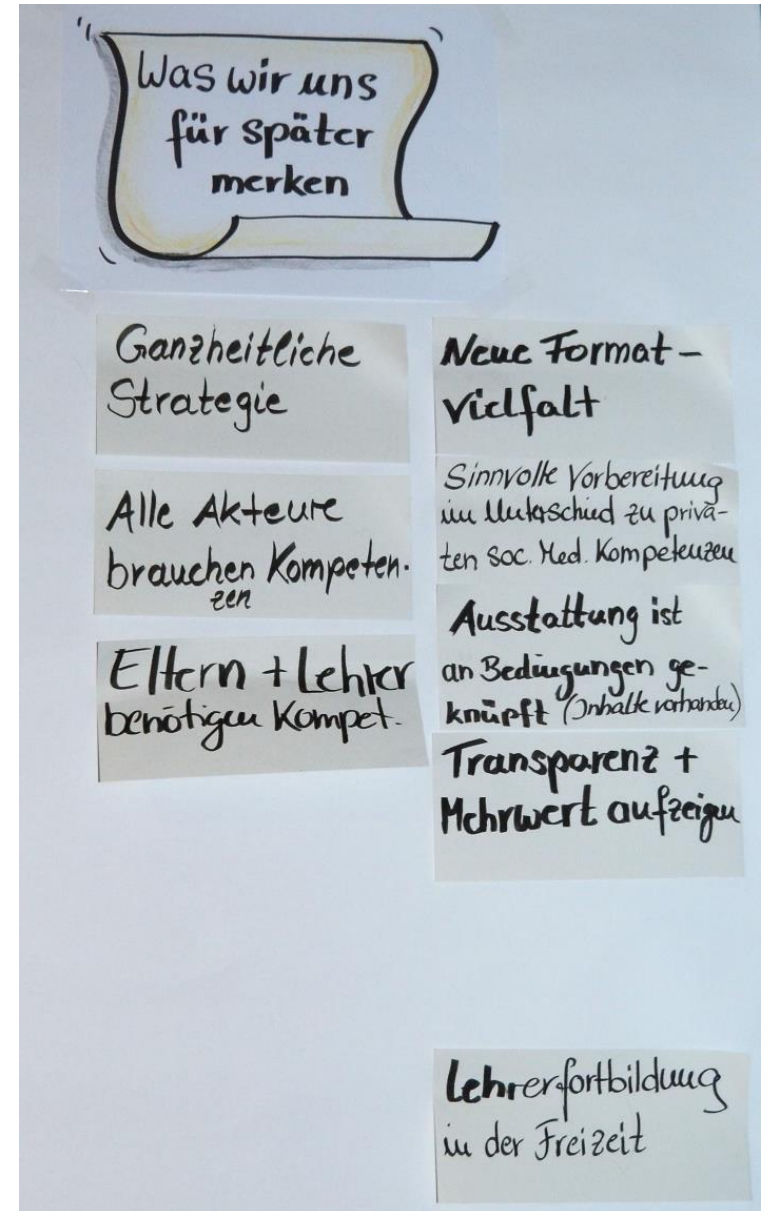 Was wir uns
für später
merken
Ganzheitliche
Strategie
Alle Akteure
brauchen Kompeten-
zen
Eltern + Lehrer
benötigen Kompet.
Neue Format-
vielfalt
Sinnvolle Vorbereitung
im Unterschied zu priva-
ten Soc. Med. Kompetenzen
Ausstattung ist
an Bedingungen ge-
knüpft (Inhalte vorhanden)
Transparenz +
Mehrwert aufzeigen
Lehrerfortbildung
in der Freizeit